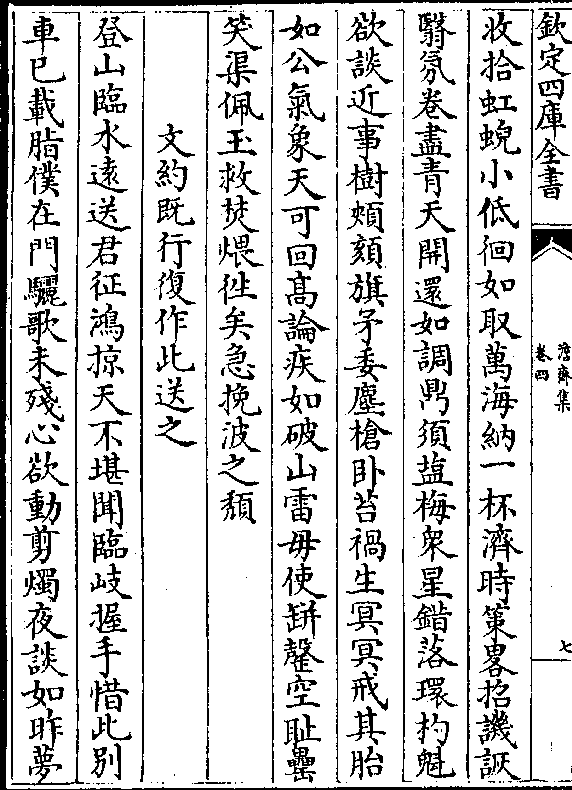 欽定四庫全書
澹齋集
卷四
七
收拾虹蜺小低徊如取萬海納一杯濟時策畧招譏詼
翳氛卷盡青天開還如調鼎須盐梅衆星錯落環杓魁
欲談近事樹頰頦旗矛委塵槍卧苔禍生冥冥戒其胎
如公氣象天可回髙論疾如破山雷毋使缾罄空耻罍
笑渠佩玉救焚煨徃矣急挽波之頽
文約既行復作此送之
登山臨水遠送君征鴻掠天不堪聞臨岐握手惜此别
車已載脂僕在門驪歌未殘心欲動剪燭夜談如昨夢